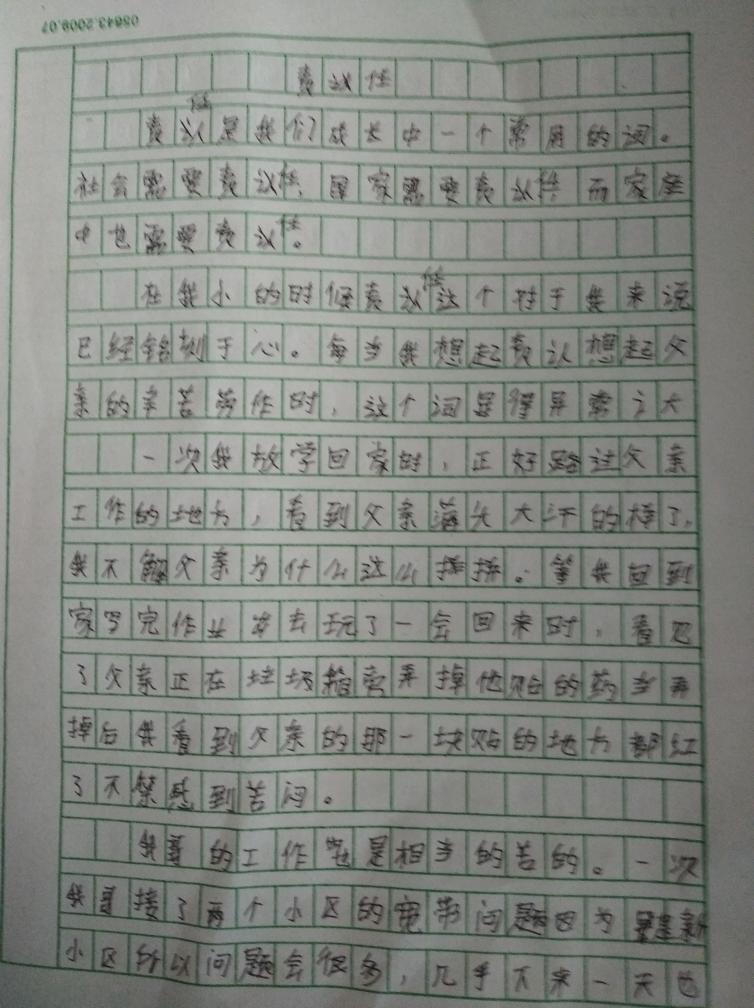 05843.2009.07
责认任
责认任是我们成长中一个常用的词。
社会需要责认任,国家需要责认任而家庭
中也需要责认任。
在我小的时候责认任这个对于我来说
已经铭刻于心。每当我想起责认想起父
亲的辛苦劳作时,这个词是
一次我放学回家时,正好路过父亲
工作的地方,看到父亲满头大汗的样子,
我不解父亲为什么这么拼拼。等我回到
家写完作业出去玩了一会回来时,看见
了父亲正在垃圾箱旁弄掉他贴的药当弄
掉后我看到父亲的那一块贴的地方都红
了不禁感到苦闷。
我哥的工作也是相当的苦的。一次
我哥接了两个小区的宽带问题因为是新
小区所以问题会很多,几乎下来一天也